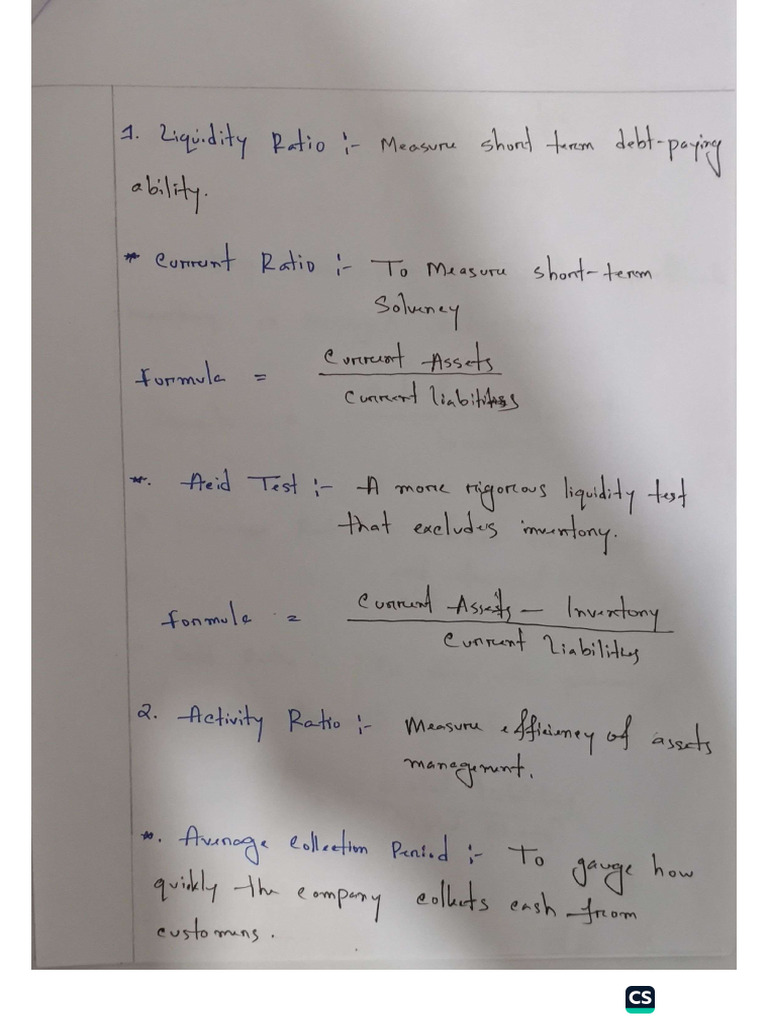 1. Liquidity Ratio :- Measure short term debt-paying
ability.
* Current Ratio :- To Measure short-term
Solvency
Formula = Current Assets
Current liabilities
*. Acid Test :- A more rigorous liquidity test
that excludes inventory.
Formula = Current Assets - Inventory
Current Liabilities
2. Activity Ratio :- Measure efficiency of assets
management.
*. Average Collection Period :- To gauge how
quickly the company collects cash from
customers.
CS